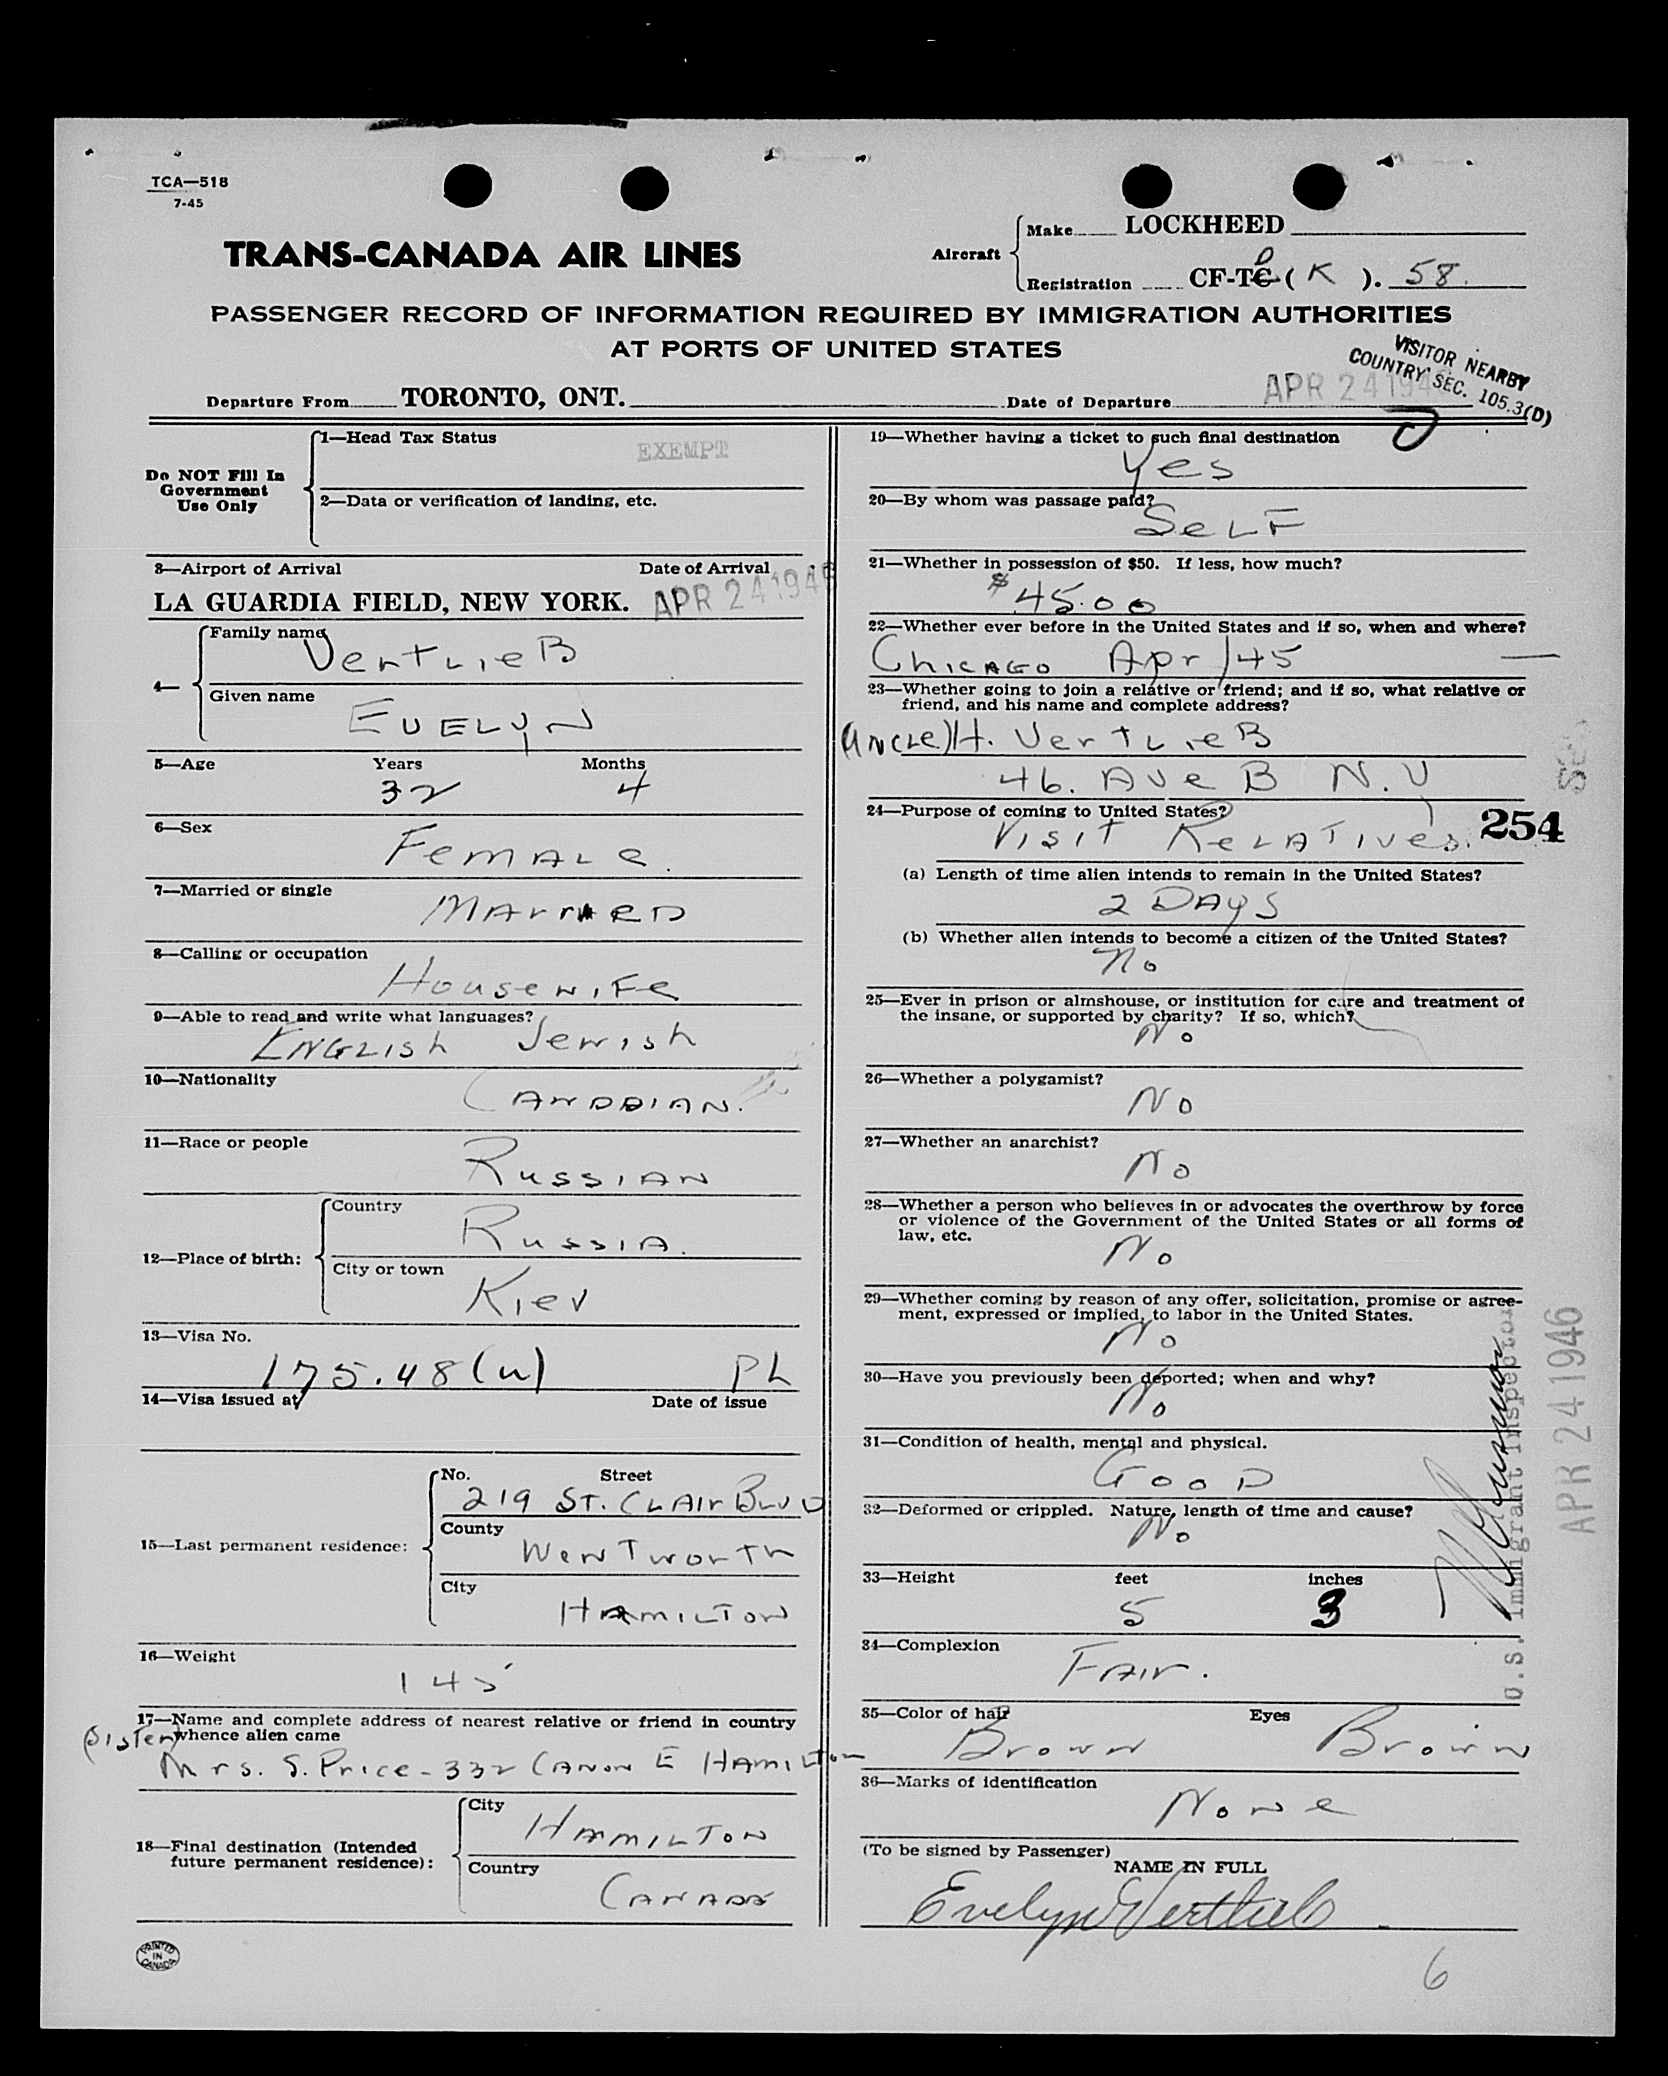 TCA—518
7-45
TRANS-CANADA AIR LINES
Aircraft
Make LOCKHEED
Registration CF-TC D ( K ). 58.
PASSENGER RECORD OF INFORMATION REQUIRED BY IMMIGRATION AUTHORITIES
AT PORTS OF UNITED STATES
VISITOR NEARBY
COUNTRY SEC. 105.3(D)
Departure From TORONTO, ONT.
Date of Departure APR 24 1946
Do NOT Fill In
Government
Use Only
1—Head Tax Status
EXEMPT
2—Data or verification of landing, etc.
3—Airport of Arrival Date of Arrival
LA GUARDIA FIELD, NEW YORK. APR 24 1946
4—
Family name
VertlieB
Given name
EVELYN
5—Age Years Months
32 4
6—Sex
Female.
7—Married or single
Married
8—Calling or occupation
Housewife
9—Able to read and write what languages?
English Jewish
10—Nationality
Canddian.
11—Race or people
Russian
12—Place of birth:
Country
Russia.
City or town
Kiev
13—Visa No.
175.48(u) PL
14—Visa issued at Date of issue
15—Last permanent residence:
No. Street
219 St. Clair Blvd
County
Wentworth
City
Hamilton
16—Weight
145
17—Name and complete address of nearest relative or friend in country
whence alien came
(Sister)
Mrs. S. Price - 332 Canon E Hamilton
18—Final destination (Intended
future permanent residence):
City
Hamilton
Country
Canada
PRINTED
IN
CANADA
19—Whether having a ticket to such final destination
Yes
20—By whom was passage paid?
Self
21—Whether in possession of $50. If less, how much?
$45.00
22—Whether ever before in the United States and if so, when and where?
Chicago Apr/45 —
23—Whether going to join a relative or friend; and if so, what relative or
friend, and his name and complete address?
(Uncle) H. VertlieB
46. Ave B N.Y
24—Purpose of coming to United States?
Visit Relatives.
254
(a) Length of time alien intends to remain in the United States?
2 Days
(b) Whether alien intends to become a citizen of the United States?
No
25—Ever in prison or almshouse, or institution for care and treatment of
the insane, or supported by charity? If so, which?
No
26—Whether a polygamist?
No
27—Whether an anarchist?
No
28—Whether a person who believes in or advocates the overthrow by force
or violence of the Government of the United States or all forms of
law, etc.
No
29—Whether coming by reason of any offer, solicitation, promise or agree-
ment, expressed or implied, to labor in the United States.
No
30—Have you previously been deported; when and why?
No
31—Condition of health, mental and physical.
Good
32—Deformed or crippled. Nature, length of time and cause?
No
33—Height feet inches
5 3
34—Complexion
Fair.
35—Color of hair Eyes
Brown Brown
36—Marks of identification
None
(To be signed by Passenger)
NAME IN FULL
Evelyn Vertlieb
6
U.S. Immigrant Inspector
APR 24 1946